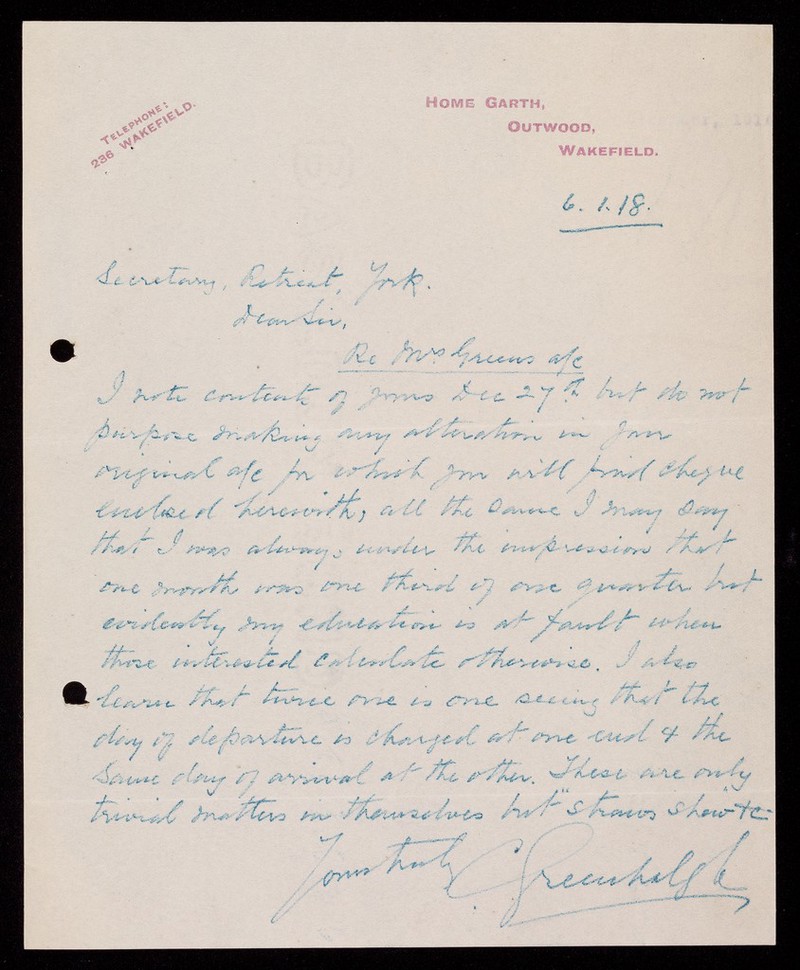 TELEPHONE:
236 WAKEFIELD.
HOME GARTH,
OUTWOOD,
WAKEFIELD.
6. 1. 18.
Secretary, Retreat, York.
Dear Sir,
Re Mrs Greens a/c
I note contents of yours Dec 27th but do not
purpose making any alteration in your
original a/c for which you will find cheque
enclosed herewith, all the same I may say
that I was always under the impression that
one month was one third of one quarter but
evidently my education is at fault when
those interested calculate otherwise. I also
learn that twice one is one seeing that the
day of departure is charged at one end & the
same day of arrival at the other. These are only
trivial matters in themselves but "straws show" &c
Yours truly C Greenhalgh